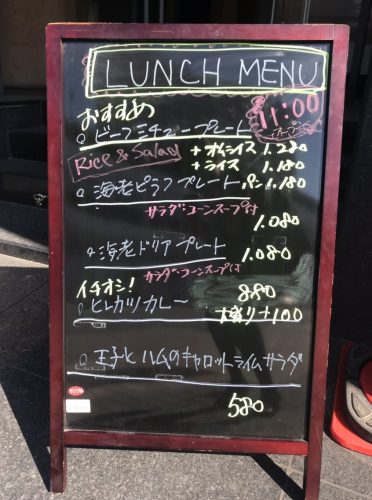 LUNCH MENU
おすすめ
11:00
オープン
ビーフシチュープレート
Rice & Salad
+オムライス 1.280
+ライス 1.180
パン 1.180
海老ピラフプレート
サラダ・コーンスープ付
1.080
海老ドリアプレート 1.080
サラダ・コーンスープ付
イチオシ!
ヒレカツカレー 880
大盛り+100
玉子とハムのキャロットライムサラダ
580
サンプル